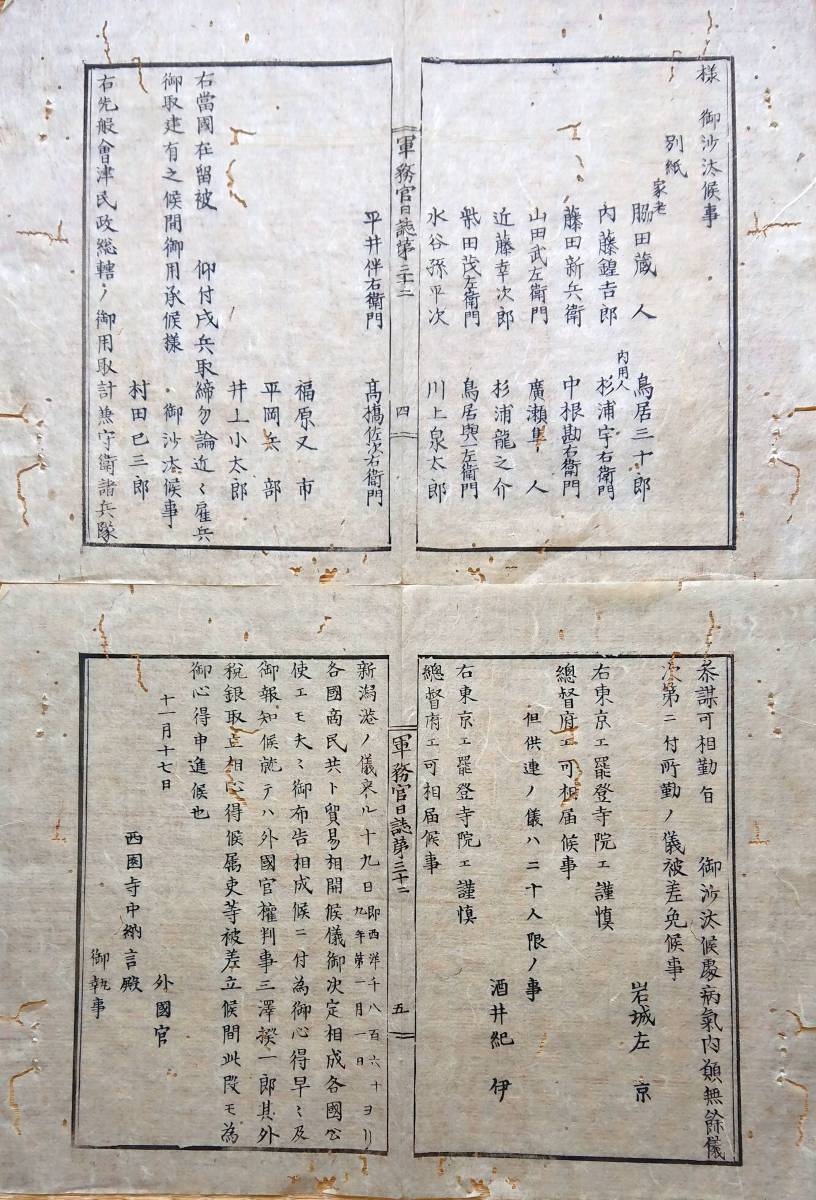 様 御沙汰候事
別紙
家老
脇田蔵人 鳥居三十郎
内用人
内藤鍠吉郎 杉浦宇右衛門
藤田新兵衛 中根勘右衛門
山田武左衛門 廣瀬隼人
近藤幸次郎 杉浦龍之介
柴田茂左衛門 鳥居與一左衛門
水谷孫平次 川上泉太郎
軍務官日誌第三十二 四
平井伴右衛門 髙橋佐次右衛門
福原又市
平岡兵部
井上小太郎
右當國在留被 仰付戍兵取締勿論近々雇兵
御取建有之候間御用承候様 御沙汰候事
村田巳三郎
右先般會津民政総轄ノ御用取計兼守衛諸兵隊
参謀可相勤旨 御沙汰候處病氣內願無餘儀
次第ニ付所勤ノ儀被差免候事
岩城左京
右東京エ罷登寺院エ謹慎
總督府エ可相届候事
但供連ノ儀ハ二十人限ノ事
酒井紀伊
右東京エ罷登寺院エ謹慎
總督府エ可相届候事
軍務官日誌第三十二 五
新潟港ノ儀来ル十九日即西洋千八百六十九年第一月一日ヨリ
各國商民共ト貿易相開候儀御決定相成各國公
使エモ夫々御布告相成候ニ付為御心得早々及
御報知候就テハ外國官權判事三澤揆一郎其外
税銀取立相心得候属吏等被差立候間此段モ為
御心得申進候也
十一月十七日 外國官
西園寺中納言殿
御執事